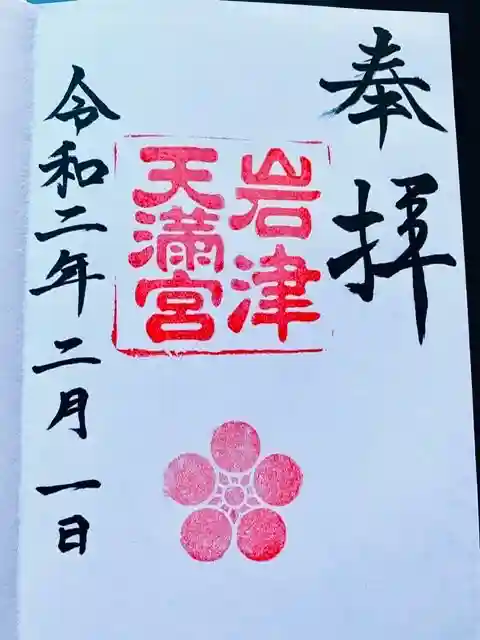 奉拝
岩津
天満宮
令和二年二月一日